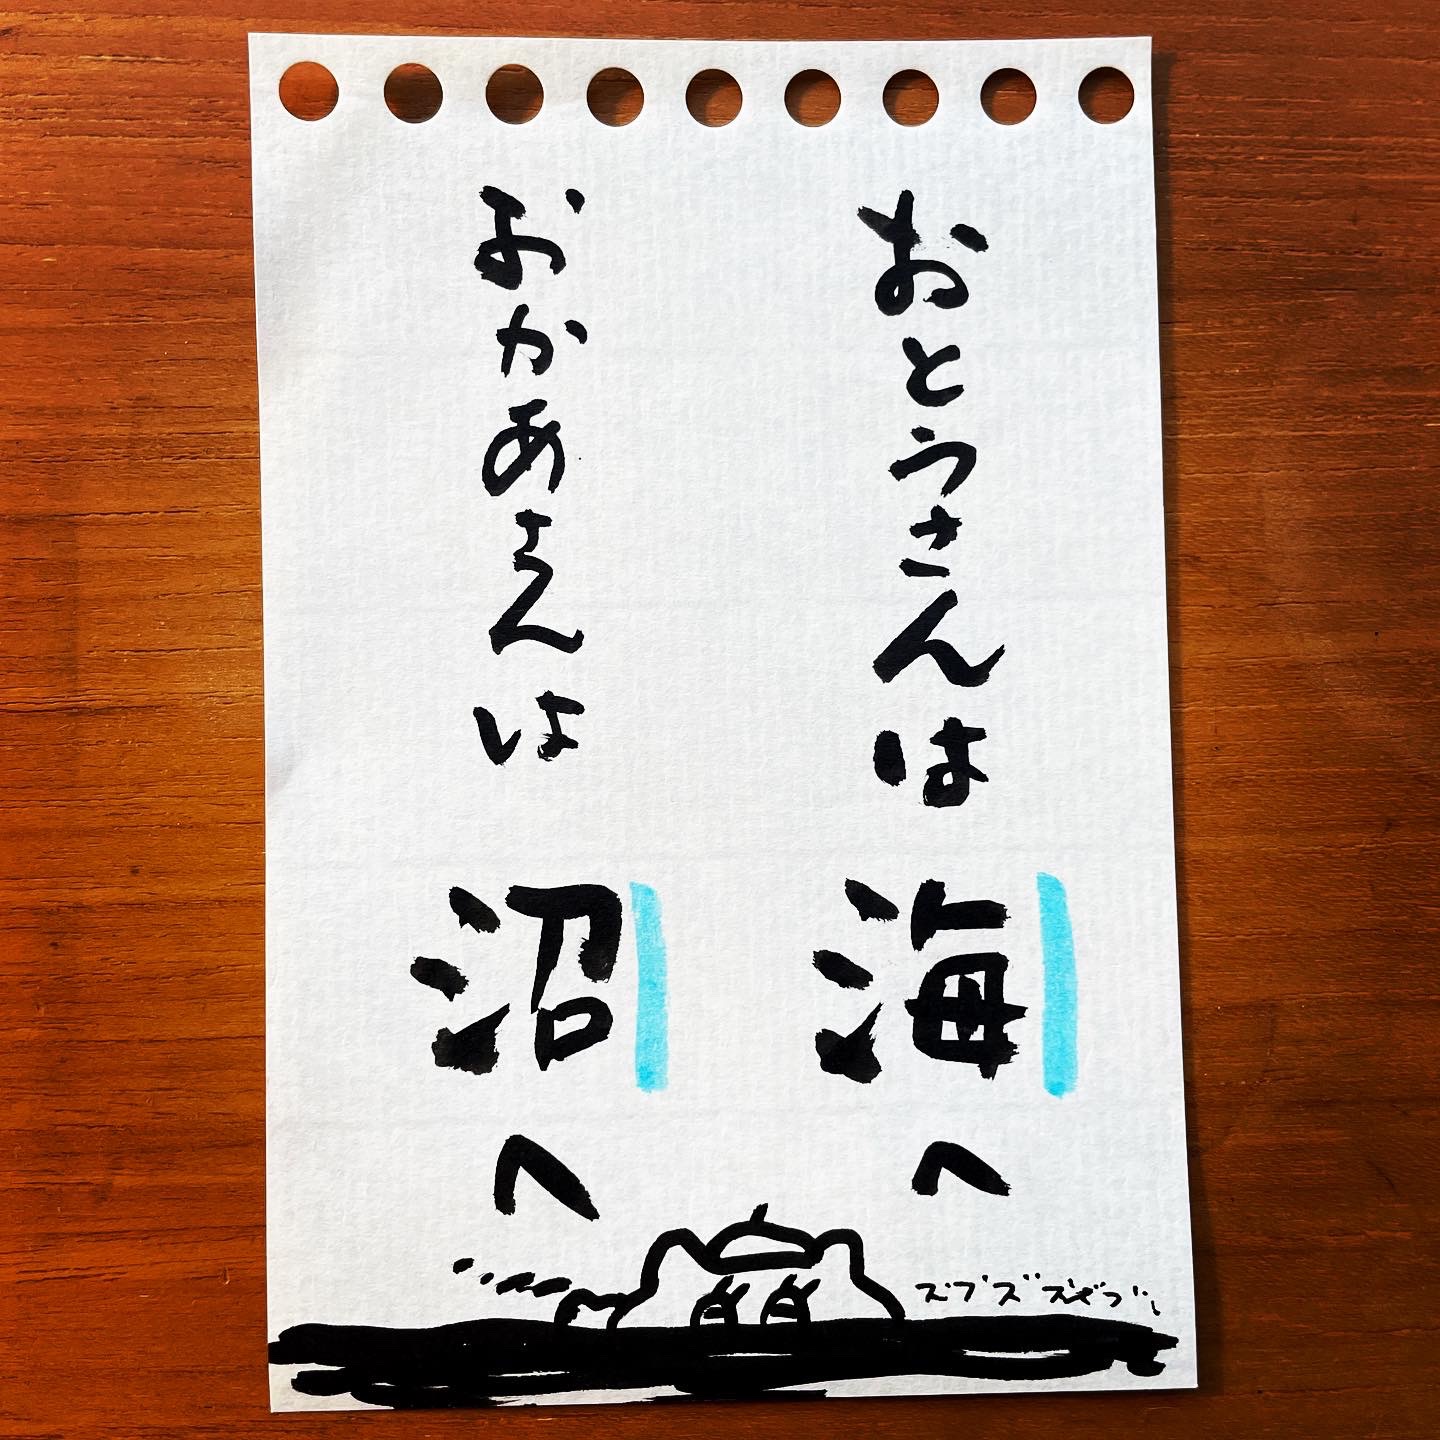 おとうさんは海へ
おかあさんは沼へ
ズブズズ